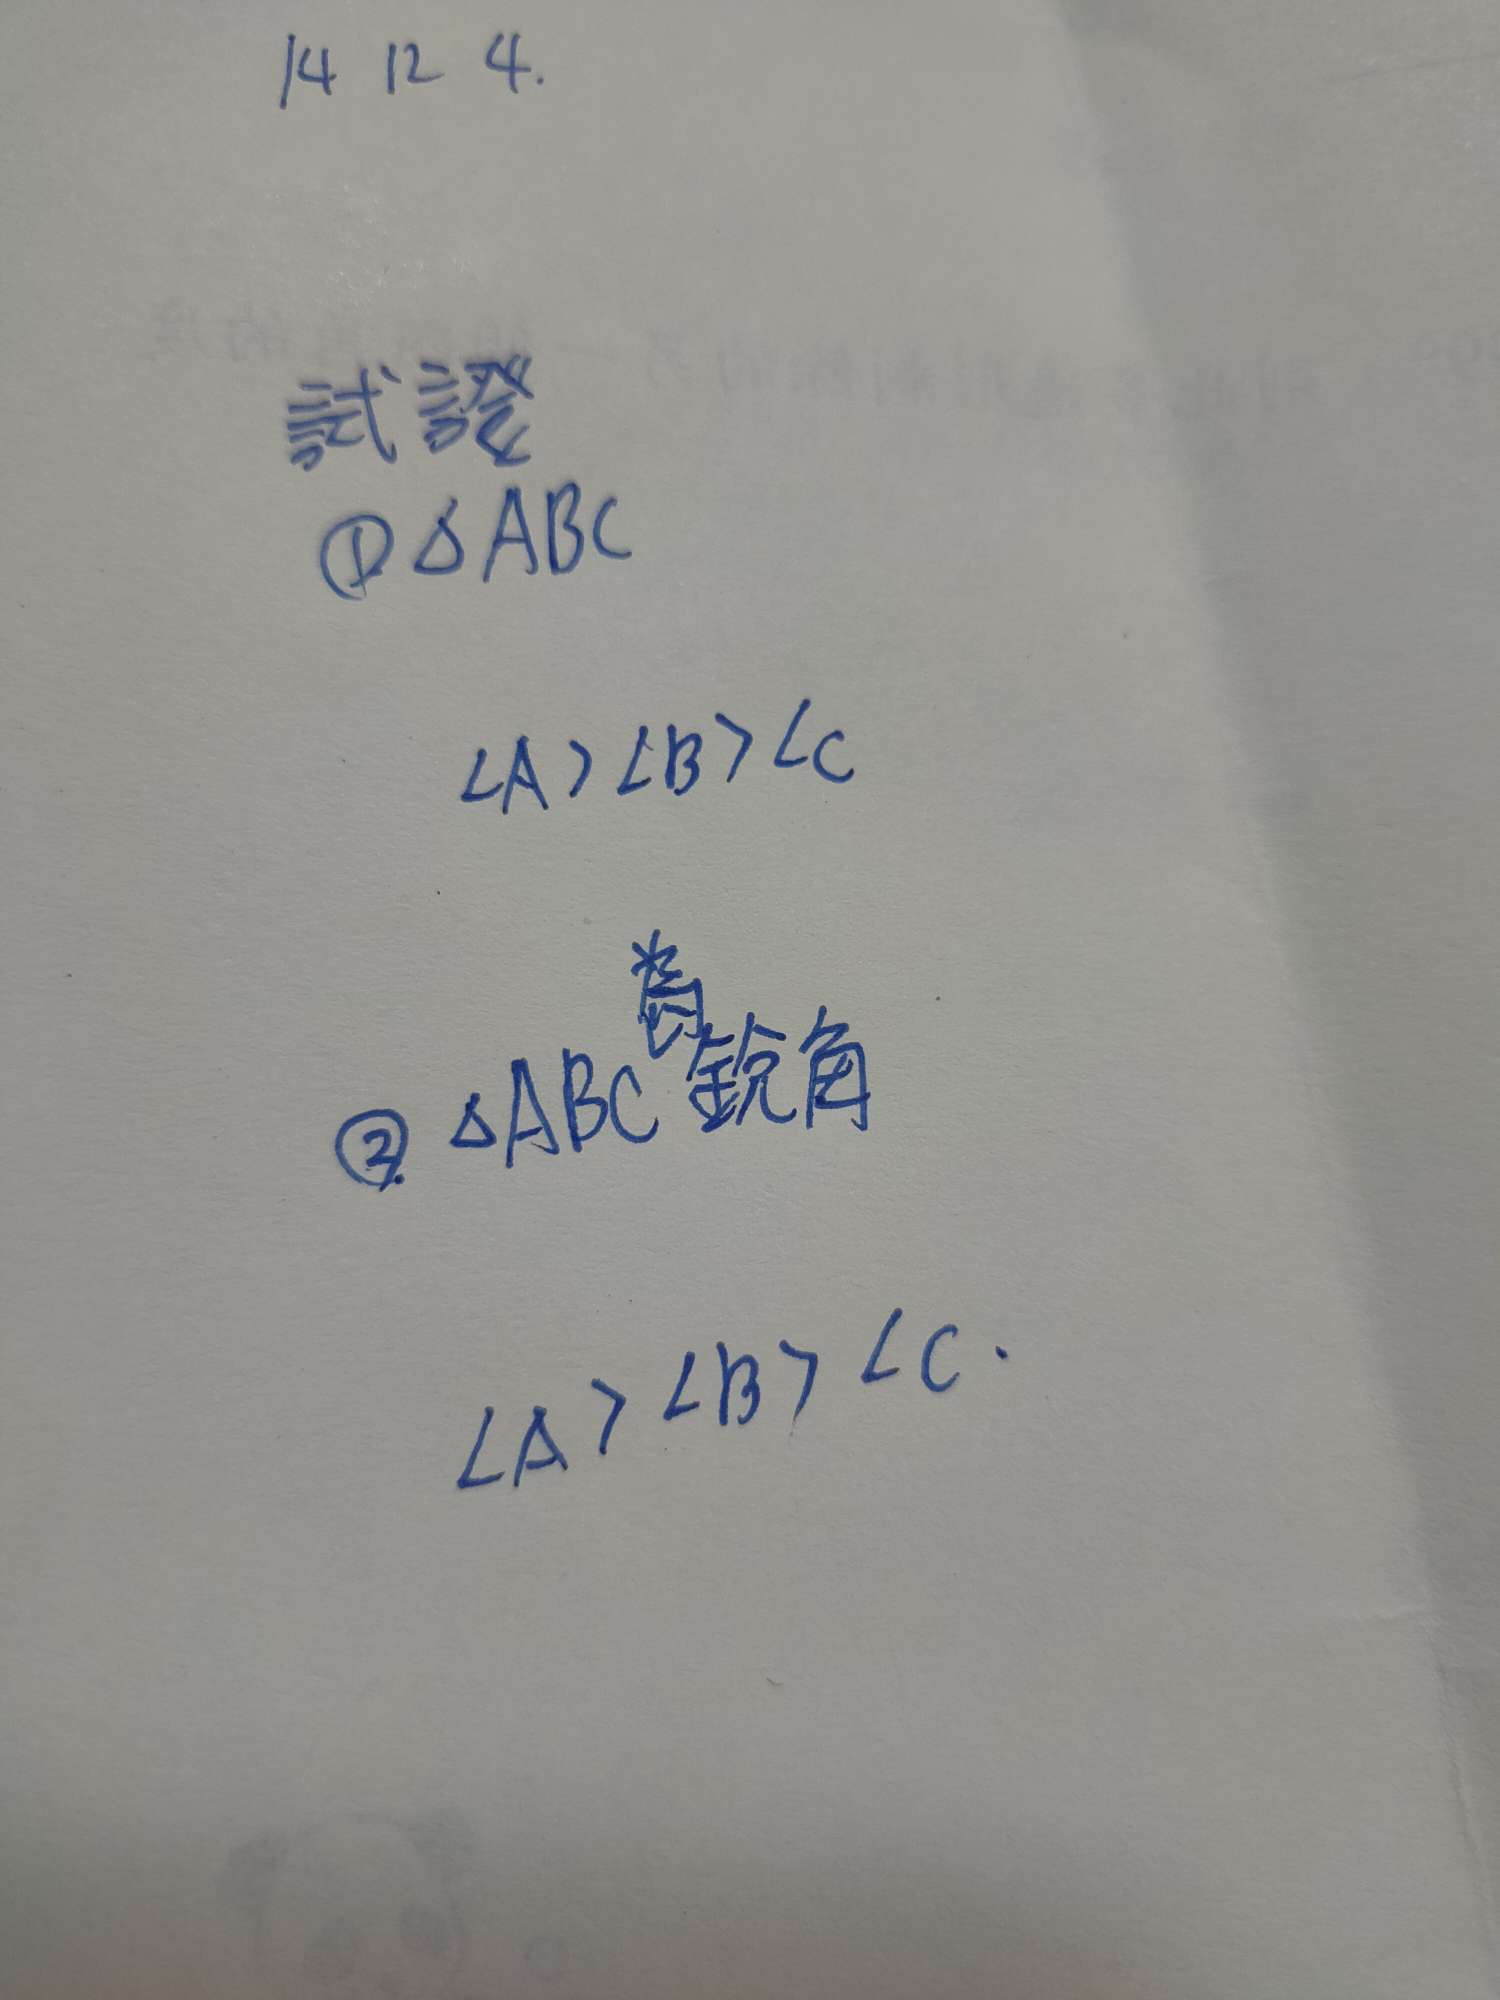 14 12 4.
試證
① △ABC
∠A > ∠B > ∠C
為
② △ABC 銳角
∠A > ∠B > ∠C.